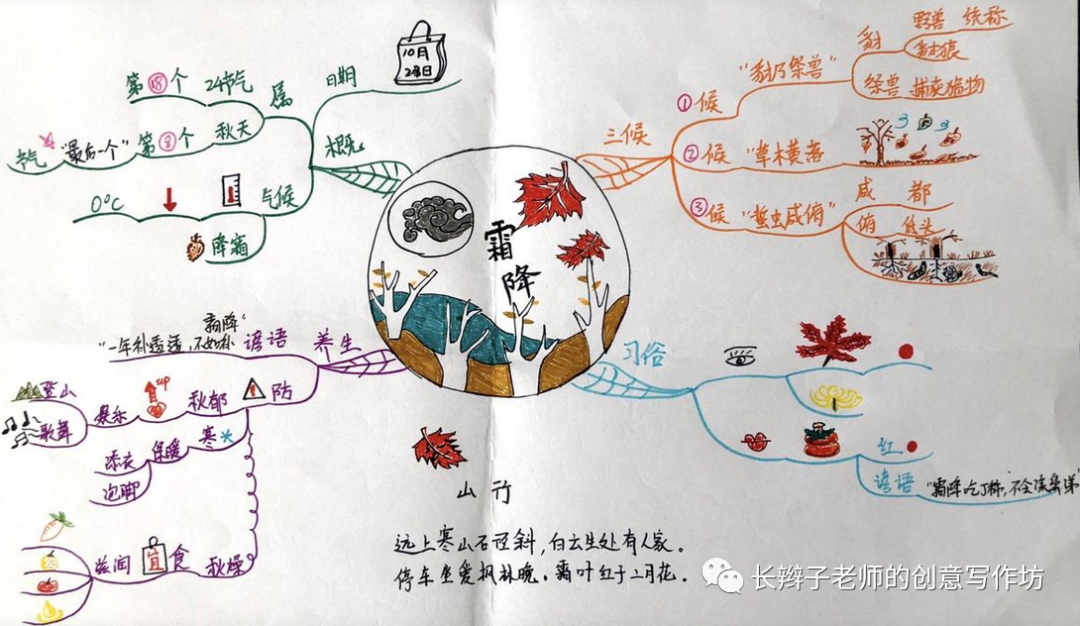 霜降
概况
日期
10月
属
24节气
第⑱个
秋天
第⑥个
"最后一个"
节气
气候
0°C
降霜
三候
①候
"豺乃祭兽"
豺
野兽
统称
豺狼
祭兽
猎物
②候
"草木黄落
③候
"蛰虫咸俯"
咸
都
俯
低头
养生
谚语
"一年补透透,不如补
霜降"
防
秋郁
up
娱乐
登山
歌舞
寒
保暖
添衣
泡脚
秋燥
食
宜
滋润
习俗
红
谚语
"霜降吃丁柿,不会流鼻涕"
山行
远上寒山石径斜,白云生处有人家。
停车坐爱枫林晚,霜叶红于二月花。
长辫子老师的创意写作坊